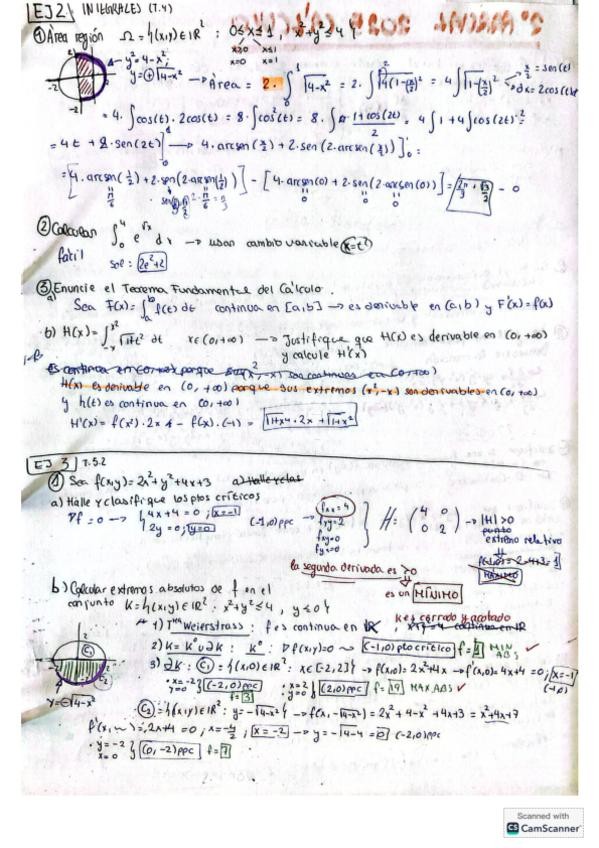 EJ2 INTEGRALES (T.4)
① Área región Ω = {(x,y) ∈ ℝ² : 0≤x≤1, x²+y²≤4}
x≥0 x≤1
x=0 x=1
y²=4-x²
y=⊕√4-x² → Área = 2·∫₀¹ √4-x² = 2·∫√4(1-(x/2)²) = 4∫√1-(x/2)²
x/2 = sen(t)
dx=2cos(t)
= 4·∫cos(t)·2cos(t) = 8·∫cos²(t) = 8·∫ 1+cos(2t)/2 = 4∫1+4∫cos(2t) =
= 4t + 2·sen(2t)]₀¹ → 4·arcsen(x/2)+2·sen(2·arcsen(x/2))]₀¹ =
= [4·arcsen(1/2)+2·sen(2·arcsen(1/2))] - [4·arcsen(0)+2·sen(2·arcsen(0))] =
② Calcular ∫₀⁴ e^√x dx → usar cambio variable x=t²
fácil sol: 2e²+2
③ Enuncie el Teorema Fundamental del Cálculo.
a) Sea F(x)=∫ₐ f(t) dt continua en [a,b] → es derivable en (a,b) y F'(x)=f(x)
b) H(x)=∫₋ₓ^x² √1+t² dt x∈(0,+∞) → Justifique que H(x) es derivable en (0,+∞)
y calcule H'(x)
H(x) es derivable en (0,+∞) porque sus extremos (x²,-x) son derivables en (0,+∞)
y h(t) es continua en (0,+∞)
H'(x) = f(x²)·2x - f(x)·(-1) = √1+x4·2x + √1+x²
EJ 3 T.5.2
① Sea f(x,y)=2x²+y²+4x+3
a) Halle y clasifique los ptos críticos
∇f=0 → {4x+4=0; x=-1
2y=0; y=0
(-1,0) ppc
fxx=4
fyy=2
fxy=0
fyx=0
H: (4 0
0 2) → |H|>0
extremo relativo
la segunda derivada es >0
es un MÍNIMO
b) Calcular extremos absolutos de f en el
conjunto K={(x,y)∈ℝ² : x²+y²≤4, y≤0}
1) Tma Weierstrass: f es continua en ℝ K es cerrado y acotado
2) K=K°∪∂K: K°: ∇f(x,y)=0 → (-1,0) pto crítico f=1 MIN ABS ✓
3) ∂K: C₁={(x,0)∈ℝ²: x∈[-2,2]} → f(x,0)=2x²+4x → f'(x,0)=4x+4=0; x=-1
(-1,0)
· x=-2 y=0 } (-2,0)ppc f=3 · x=2 y=0 } (2,0)ppc f=19 MAX.ABS ✓
y=⊖√4-x²
C₂={(x,y)∈ℝ²: y=-√4-x²} → f(x,-√4-x²)=2x²+4-x²+4x+3=x²+4x+7
f'(x,~)=2x+4=0; x=-4/2; x=-2 → y=-√4-4=0 (-2,0)ppc
· y=-2 x=0 } (0,-2)ppc f=7
Scanned with
CS CamScanner